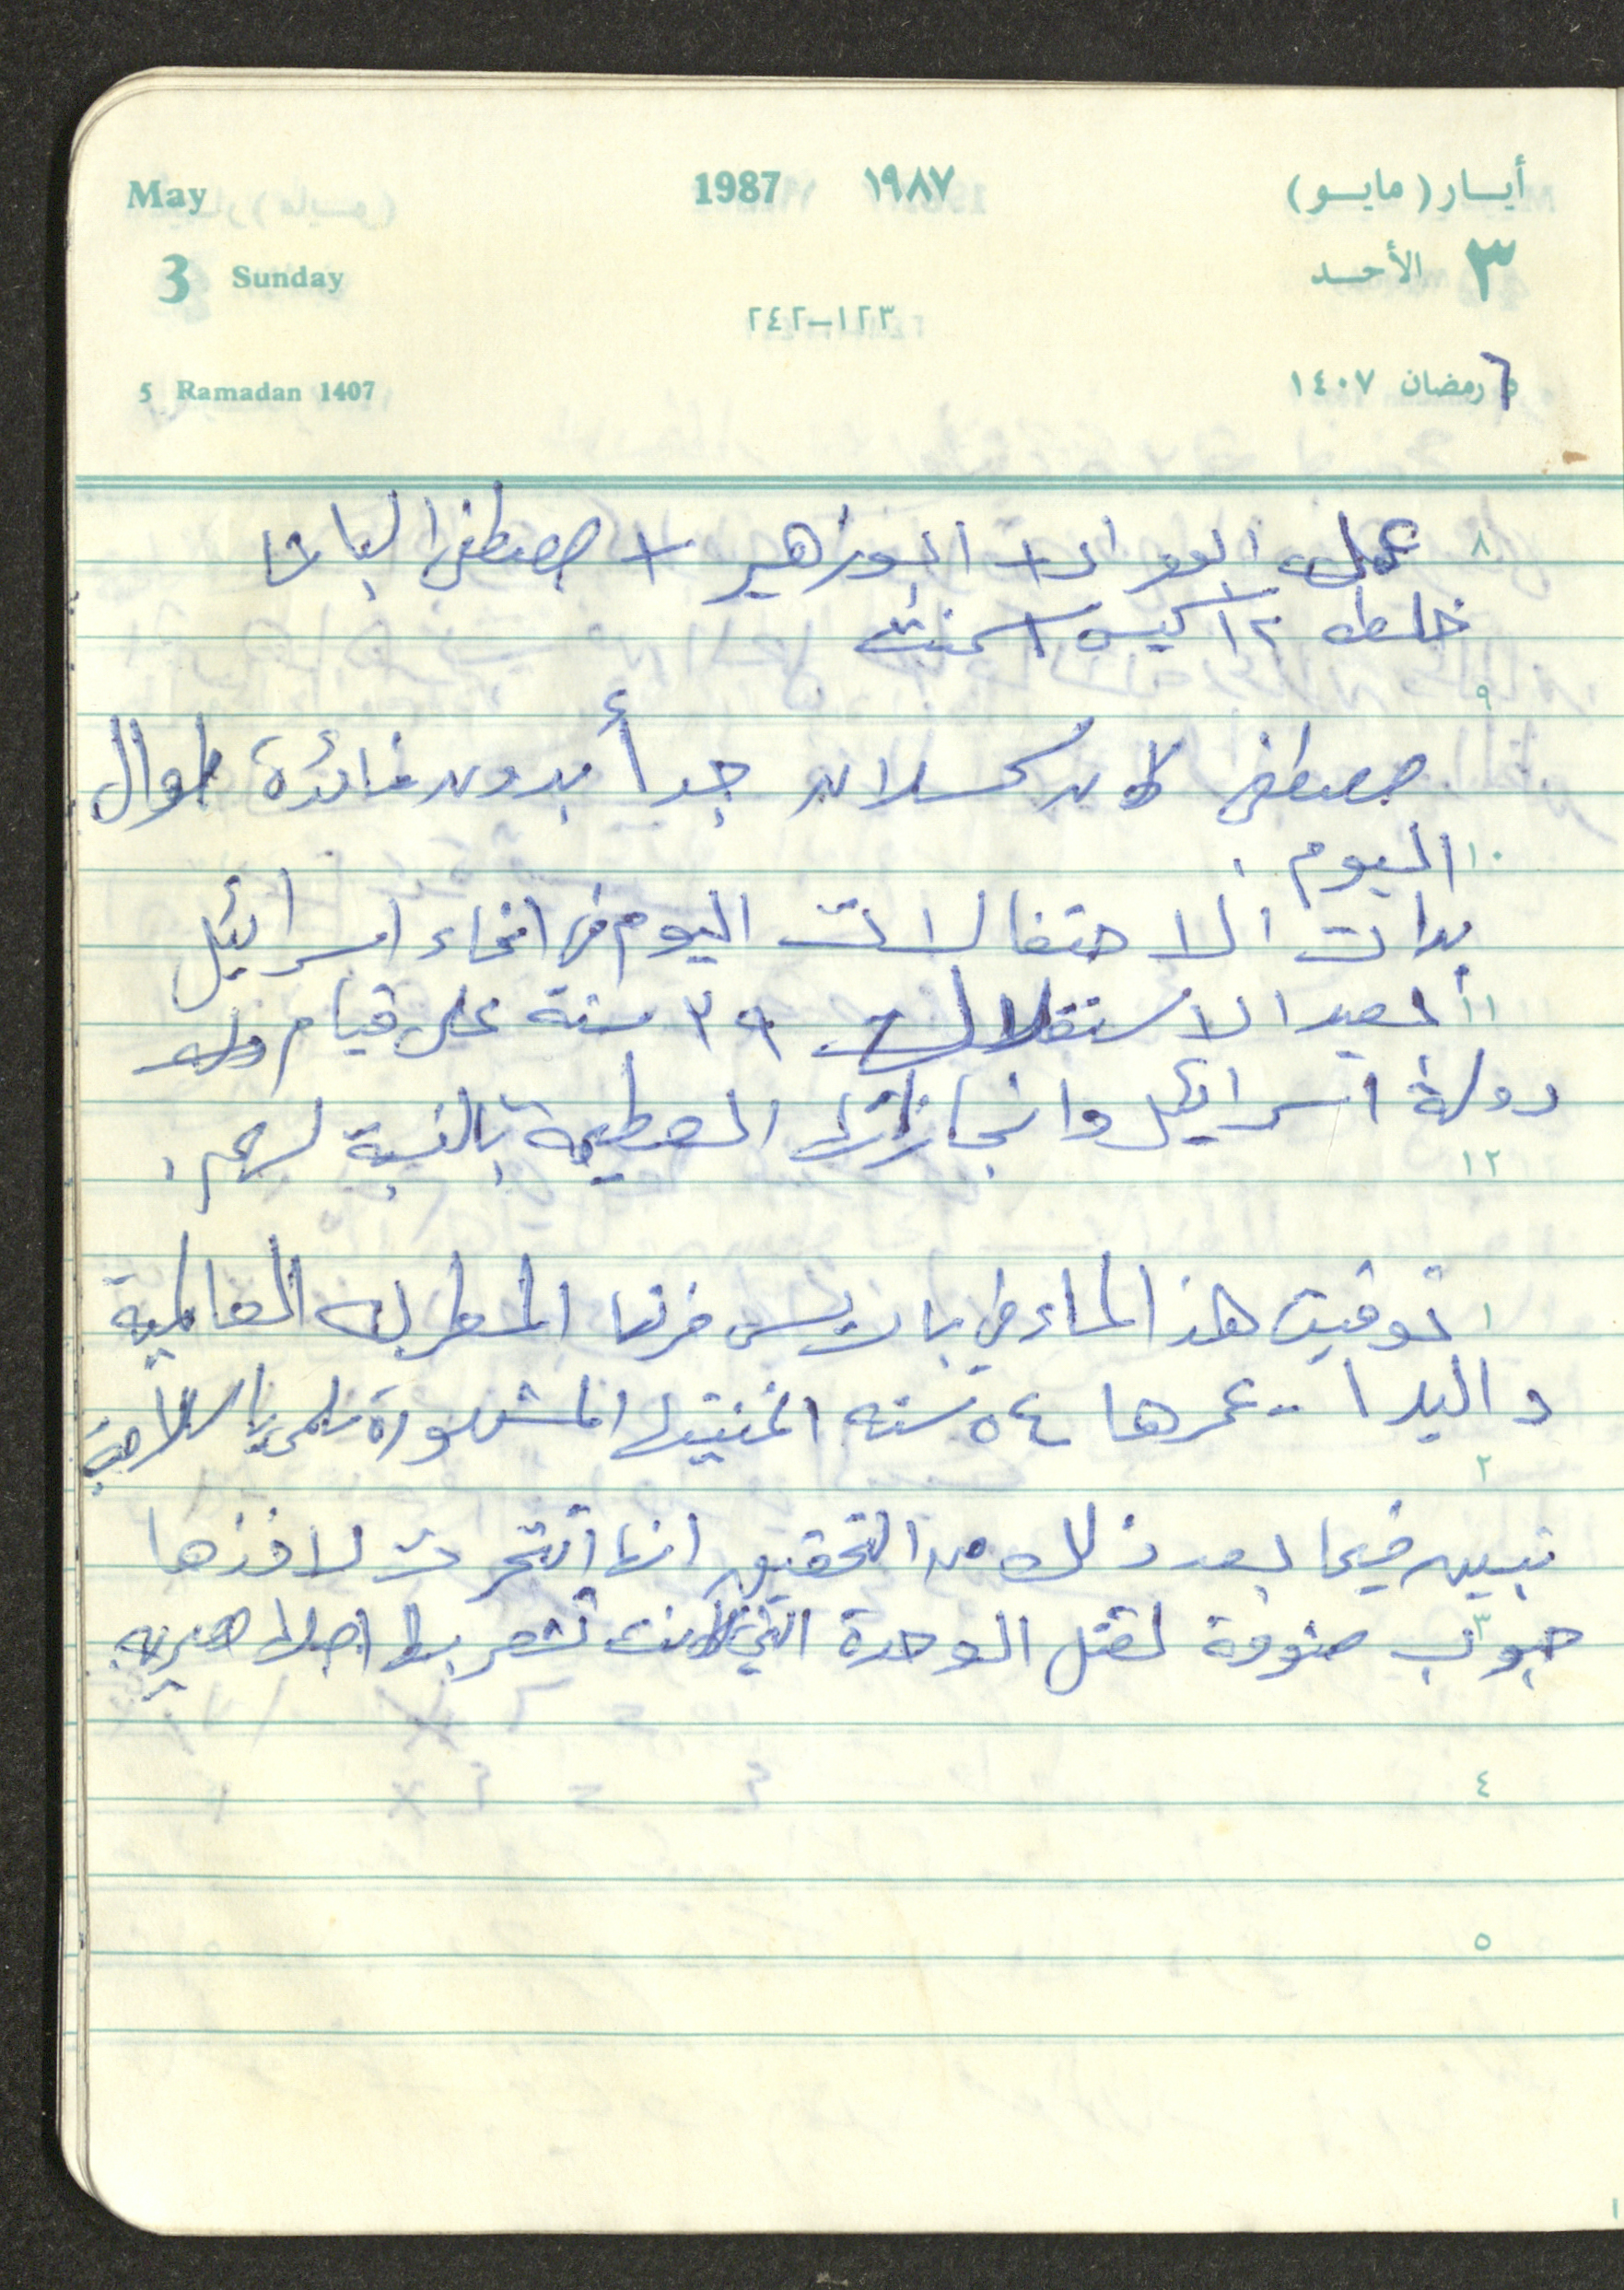 May 1987 ١٩٨٧ أيسار (مايسو)
3 Sunday ٣ الأحسد
١٢٣-٢٤٢
5 Ramadan 1407 ٦ رمضان ١٤٠٧
٨ عمل العواد + ابو زهير + مصطفى الباشا
خلطه ١٢ كيس اسمنت
٩
مصطفى كان كسلان جداً بدون فائدة طوال
١٠ اليوم .
بدات الاحتفالات اليوم في انحاء اسرائيل
١١ لعيد الاستقلال ٣٩ سنة على قيام
دولة اسرائيل وانجازاتها العظيمة بالنسبة لهم .
١٢
١ توفيت هذا المساء في باريس فرنسا المطربه العالمية
داليدا - عمرها ٥٤ سنه اغنيتها المشهورة سلمى يا سلامة
٢
تبين فيما بعد ذلك من التحقيق انها انتحرت لاخذها
٣ حبوب منومة لثقل الوحدة التي كانت تشعر بها اصلها مصريه
٤
٥